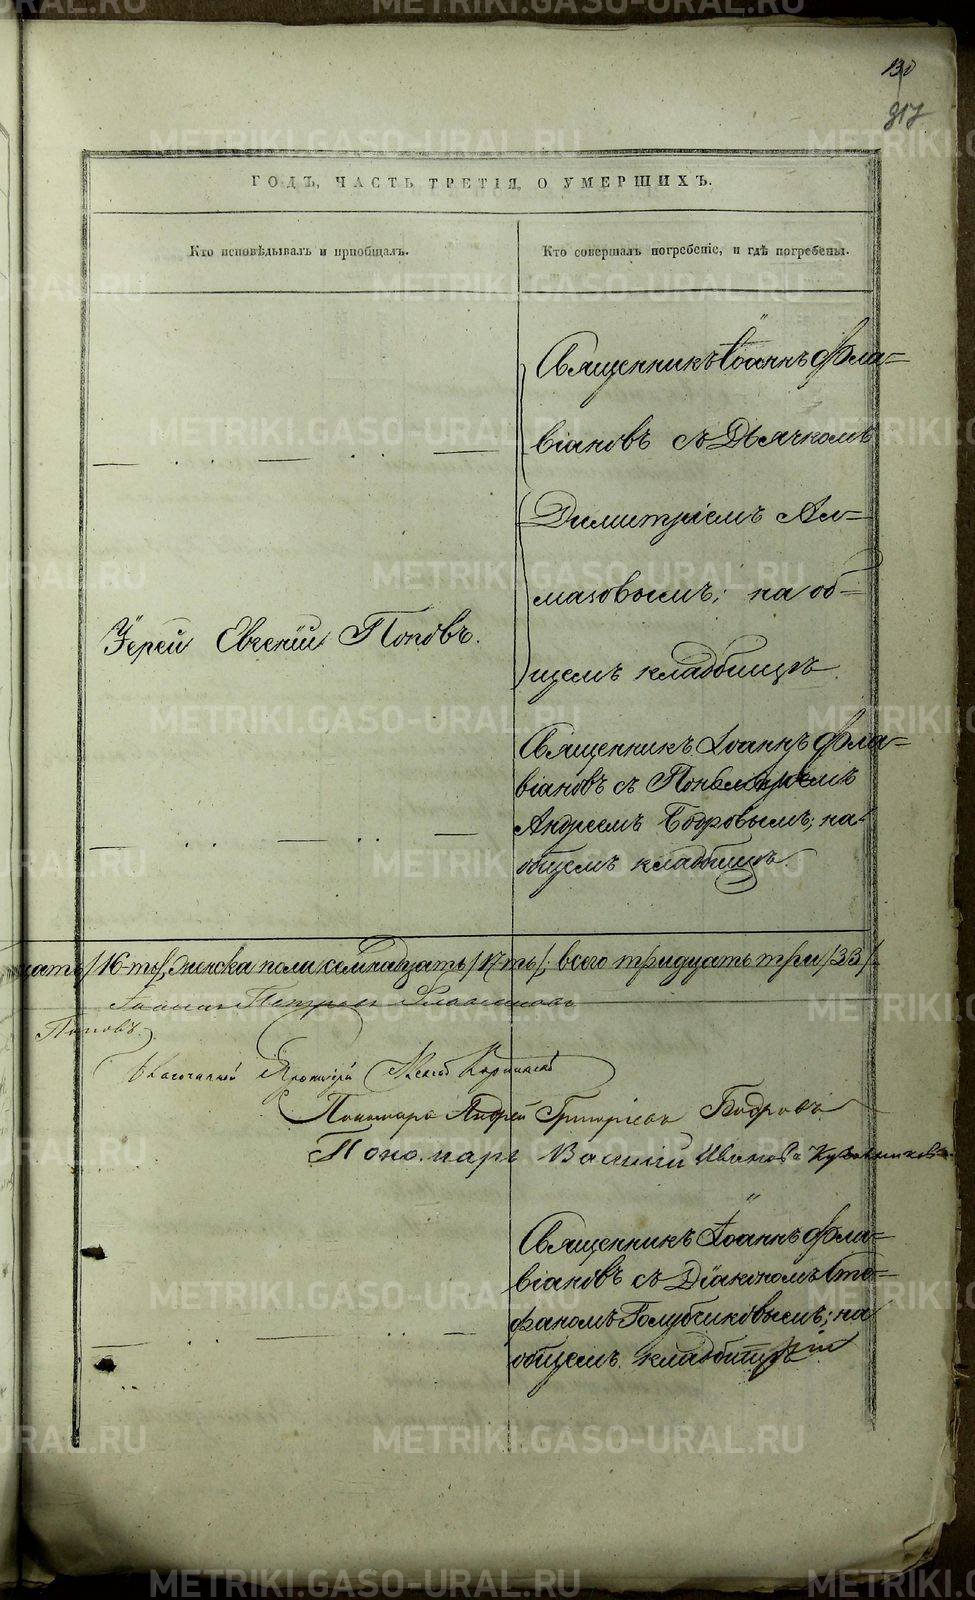 130
217
ГОДЪ, ЧАСТЬ ТРЕТІЯ, О УМЕРШИХЪ.
Кто исповѣдывалъ и пріобщалъ.
Кто совершалъ погребеніе, и гдѣ погребены.
Священникъ Іоаннъ Фла=
віановъ съ Дьячкомъ
Димитріемъ Ал=
мазовымъ; на об=
щемъ кладбищѣ.
Іерей Евгеній Поповъ.
Священникъ Іоаннъ Фла=
віановъ съ Пономаремъ
Андреемъ Бодровымъ; на
общемъ кладбищѣ.
цать /16-ть/, женска пола семнадцать /17ть/; всего тридцать три /33/.
Іоаннъ Петровъ
Поповъ.
Протоіерей
Пономарь Андрей Григорьевъ Бодровъ
Пономарь Василій Ивановъ
Священникъ Іоаннъ Фла=
віановъ съ Діакономъ Сте=
фаномъ Голубчиковымъ; на
общемъ кладбищѣ.
METRIKI.GASO-URAL.RU